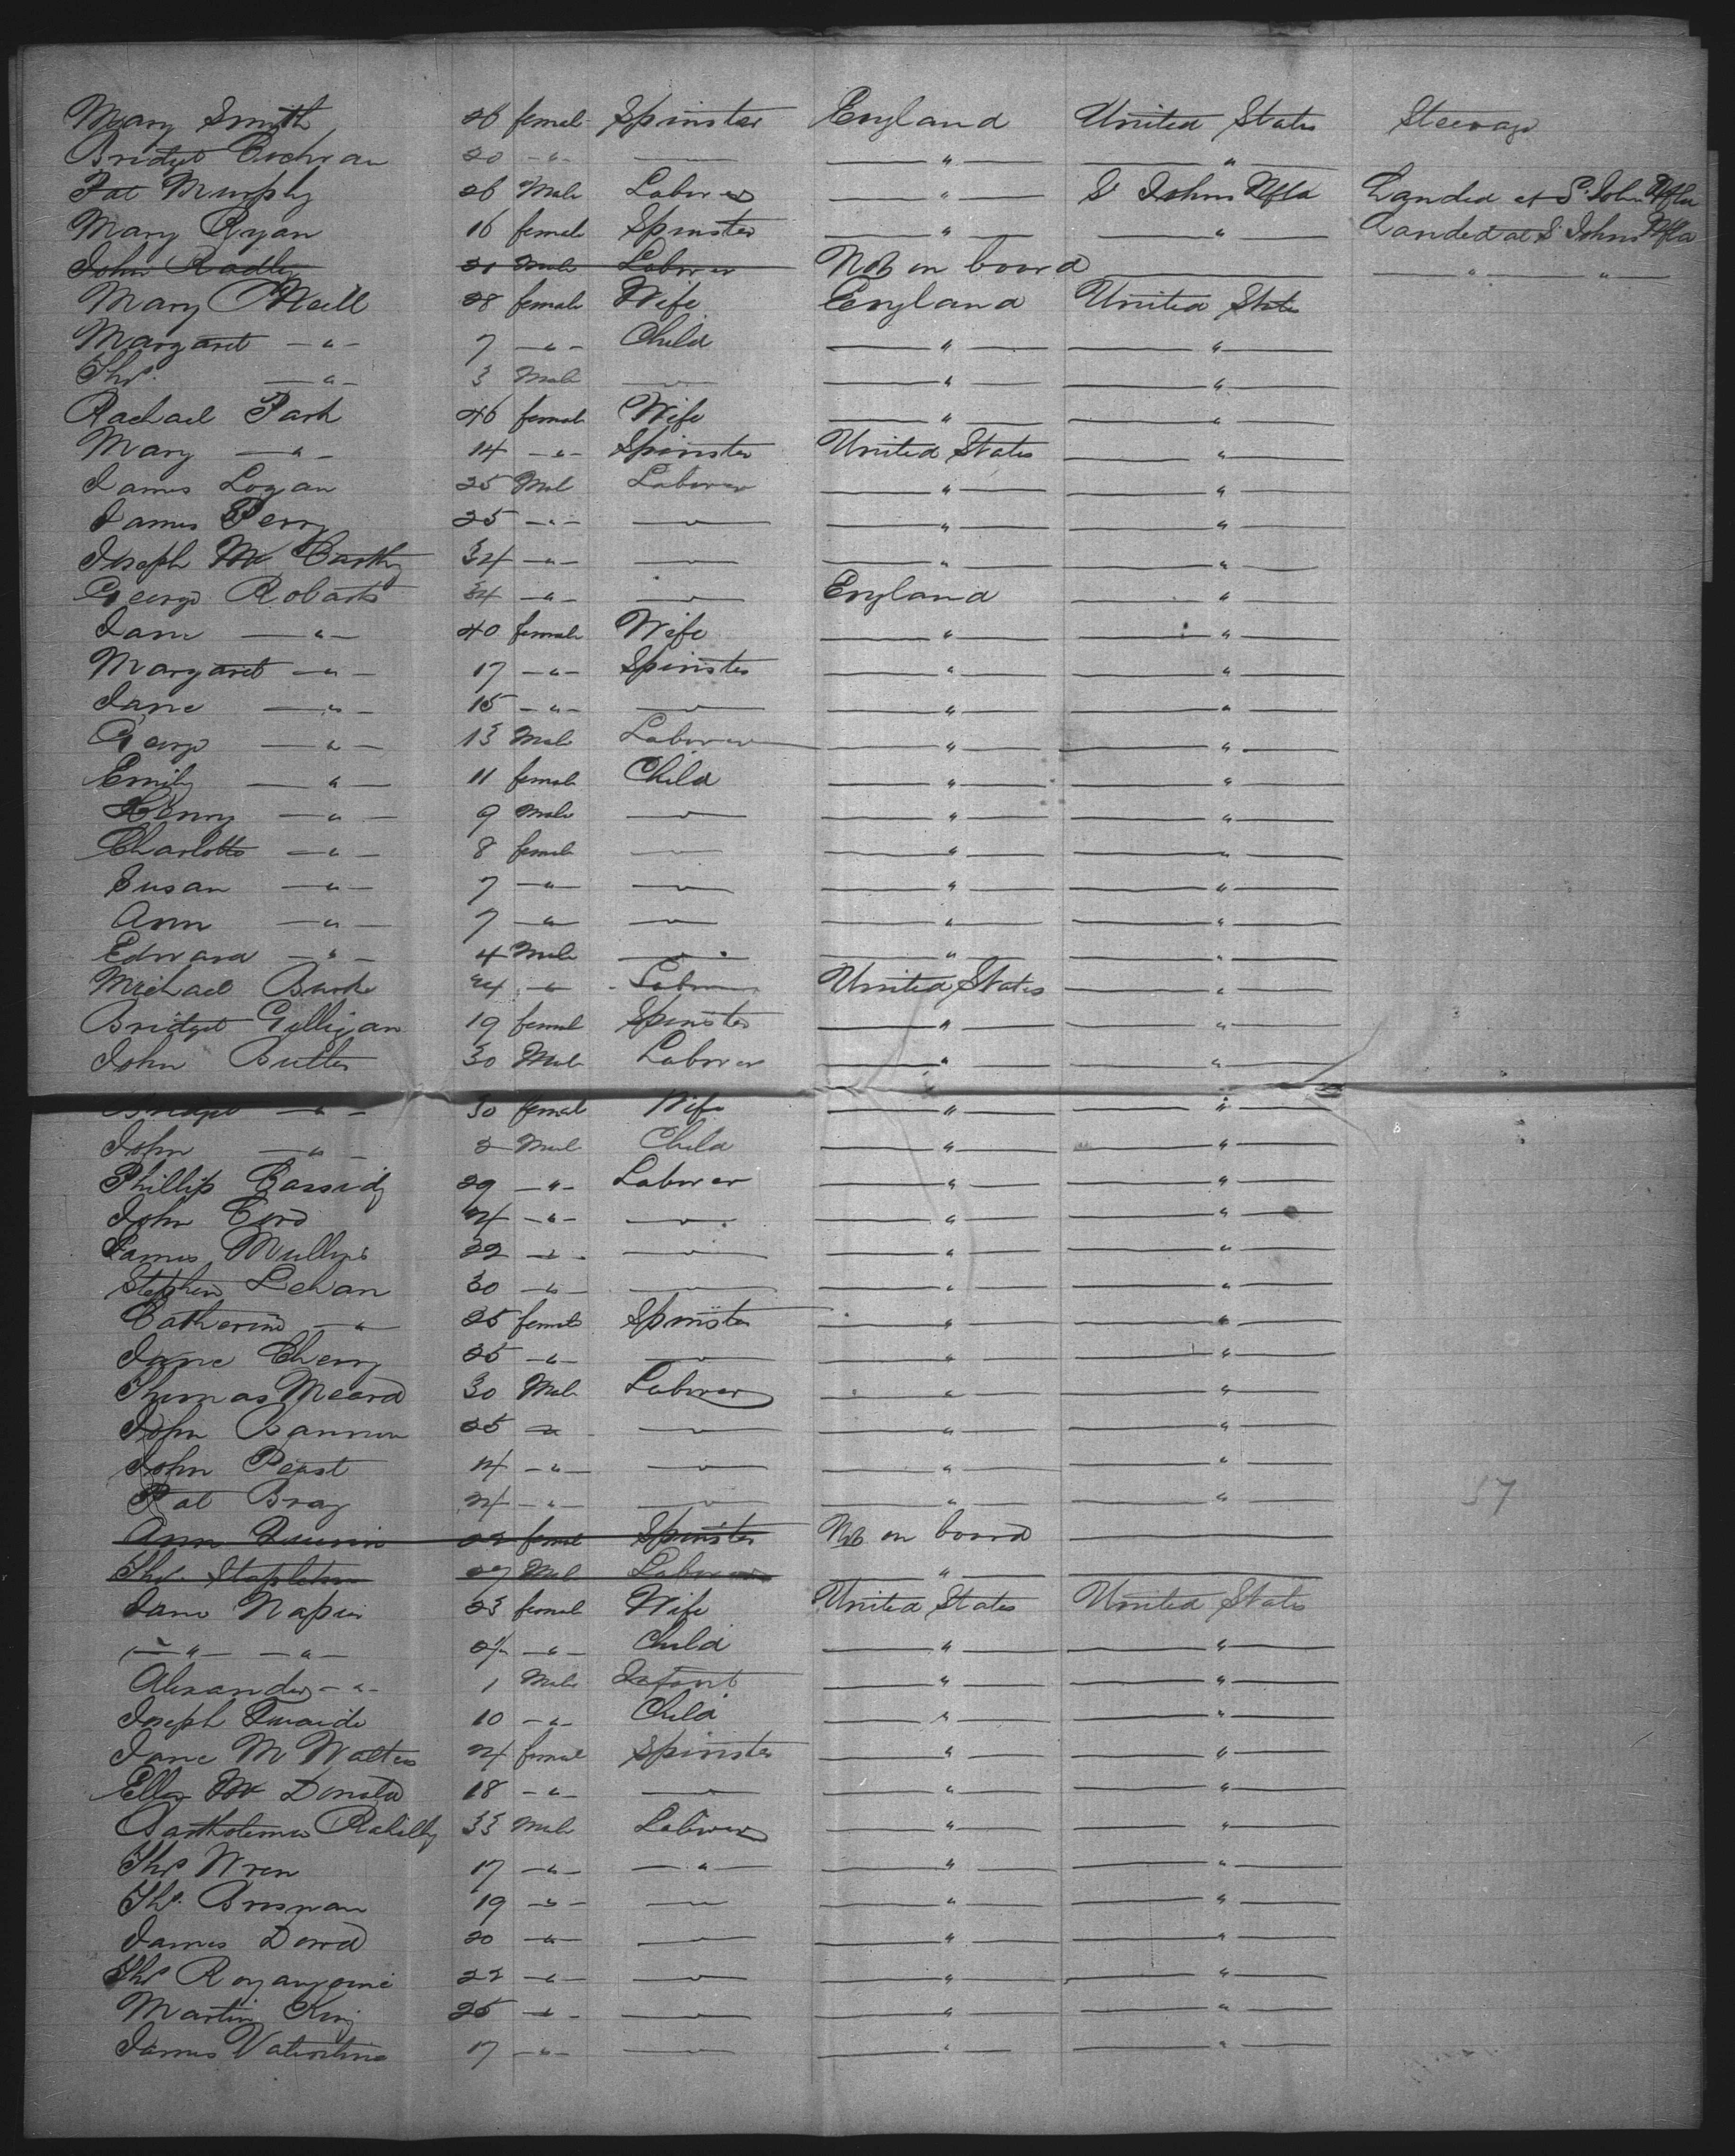 Mary Smith 26 female Spinster England United States Steerage
Bridget Cochran 20 -"- — —"— —"—
Pat Murphy 26 Male Laborer —"— St Johns Nfld Landed at St. Johns Nfld
Mary Ryan 16 female Spinster —"— —"— Landed at St Johns Nfld
John Radley 21 Male Laborer Not on board — —"—"—
Mary O'Neill 28 female Wife England United States
Margaret -"- 7 -"- Child —"— —"—
Thos. -"- 3 Male — —"— —"—
Rachael Park 46 female Wife —"— —"—
Mary -"- 14 -"- Spinster United States —"—
James Logan 25 Male Laborer —"— —"—
James Perry 25 -"- — —"— —"—
Joseph Mc Carthy 34 -"- — —"— —"—
George Robarts 34 -"- — England —"—
Jane -"- 40 female Wife —"— —"—
Margaret -"- 17 -"- Spinster —"— —"—
Jane -"- 15 -"- — —"— —"—
George -"- 13 Male Laborer —"— —"—
Emily -"- 11 female Child —"— —"—
Henry -"- 9 Male — —"— —"—
Charlotte -"- 8 female — —"— —"—
Susan -"- 7 -"- — —"— —"—
Ann -"- 7 -"- — —"— —"—
Edward -"- 4 Male — —"— —"—
Michael Burke 24 -"- Laborer United States —"—
Bridget Gilligan 19 female Spinster —"— —"—
John Butler 30 Male Laborer —"— —"—
Bridget -"- 30 female Wife —"— —"—
John -"- 2 Male Child —"— —"—
Phillip Cassidy 29 -"- Laborer —"— —"—
John 24 -"- — —"— —"—
James Mullins 22 -"- — —"— —"—
Stephen Lehan 30 -"- — —"— —"—
Catherine -"- 25 female Spinster —"— —"—
Jane Cherry 25 -"- — —"— —"—
Thomas Meara 30 Male Laborer —"— —"—
John Bannon 25 -"- — —"— —"—
John -"- — —"— —"—
Pat Bray 24 -"- — —"— —"— 57
Ann 22 female Spinster Not on board —
Thos. Stapleton 27 Male Laborer —"— —
Jane Napier 23 female Wife United States United States
-"- -"- -"- Child —"— —"—
Alexander -"- 1 Male Infant —"— —"—
Joseph 10 -"- Child —"— —"—
Jane M Walters 24 female Spinster —"— —"—
Ellen Mc Donald 18 -"- — —"— —"—
Bartholemew Rahilly 33 Male Laborer —"— —"—
Thos Wren 17 -"- —"— —"— —"—
Thos. Brosnan 19 -"- — —"— —"—
James Dowd 20 -"- — —"— —"—
Thos 22 -"- — —"— —"—
Martin King 25 -"- — —"— —"—
James Valentine 17 -"- — —"— —"—